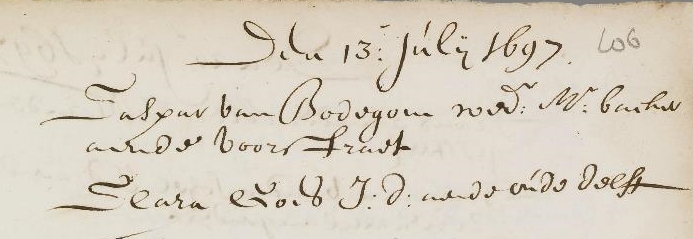 Den 13: Julij 1697. 606
Caspar van Bodegom wed.r Mr. backer
aende Voorstraet
Clara Gois J: d: aende oude delft